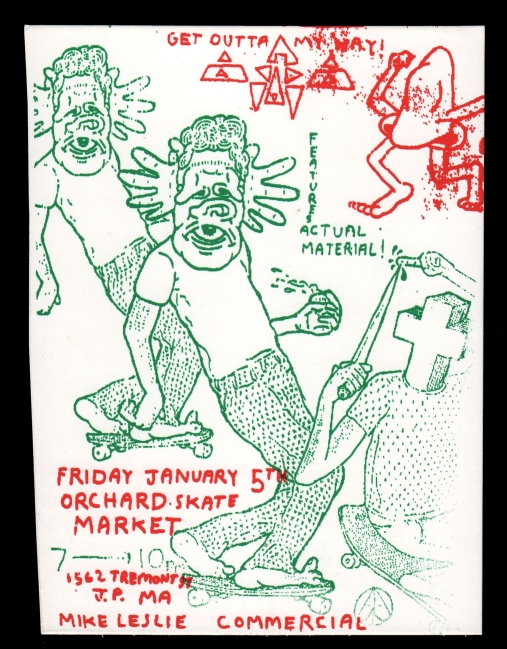 GET OUTTA MY WAY!
FEATURE
ACTUAL
MATERIAL!
FRIDAY JANUARY 5TH
ORCHARD SKATE
MARKET
7 — 10PM
1562 TREMONT ST
J.P. MA
MIKE LESLIE COMMERCIAL